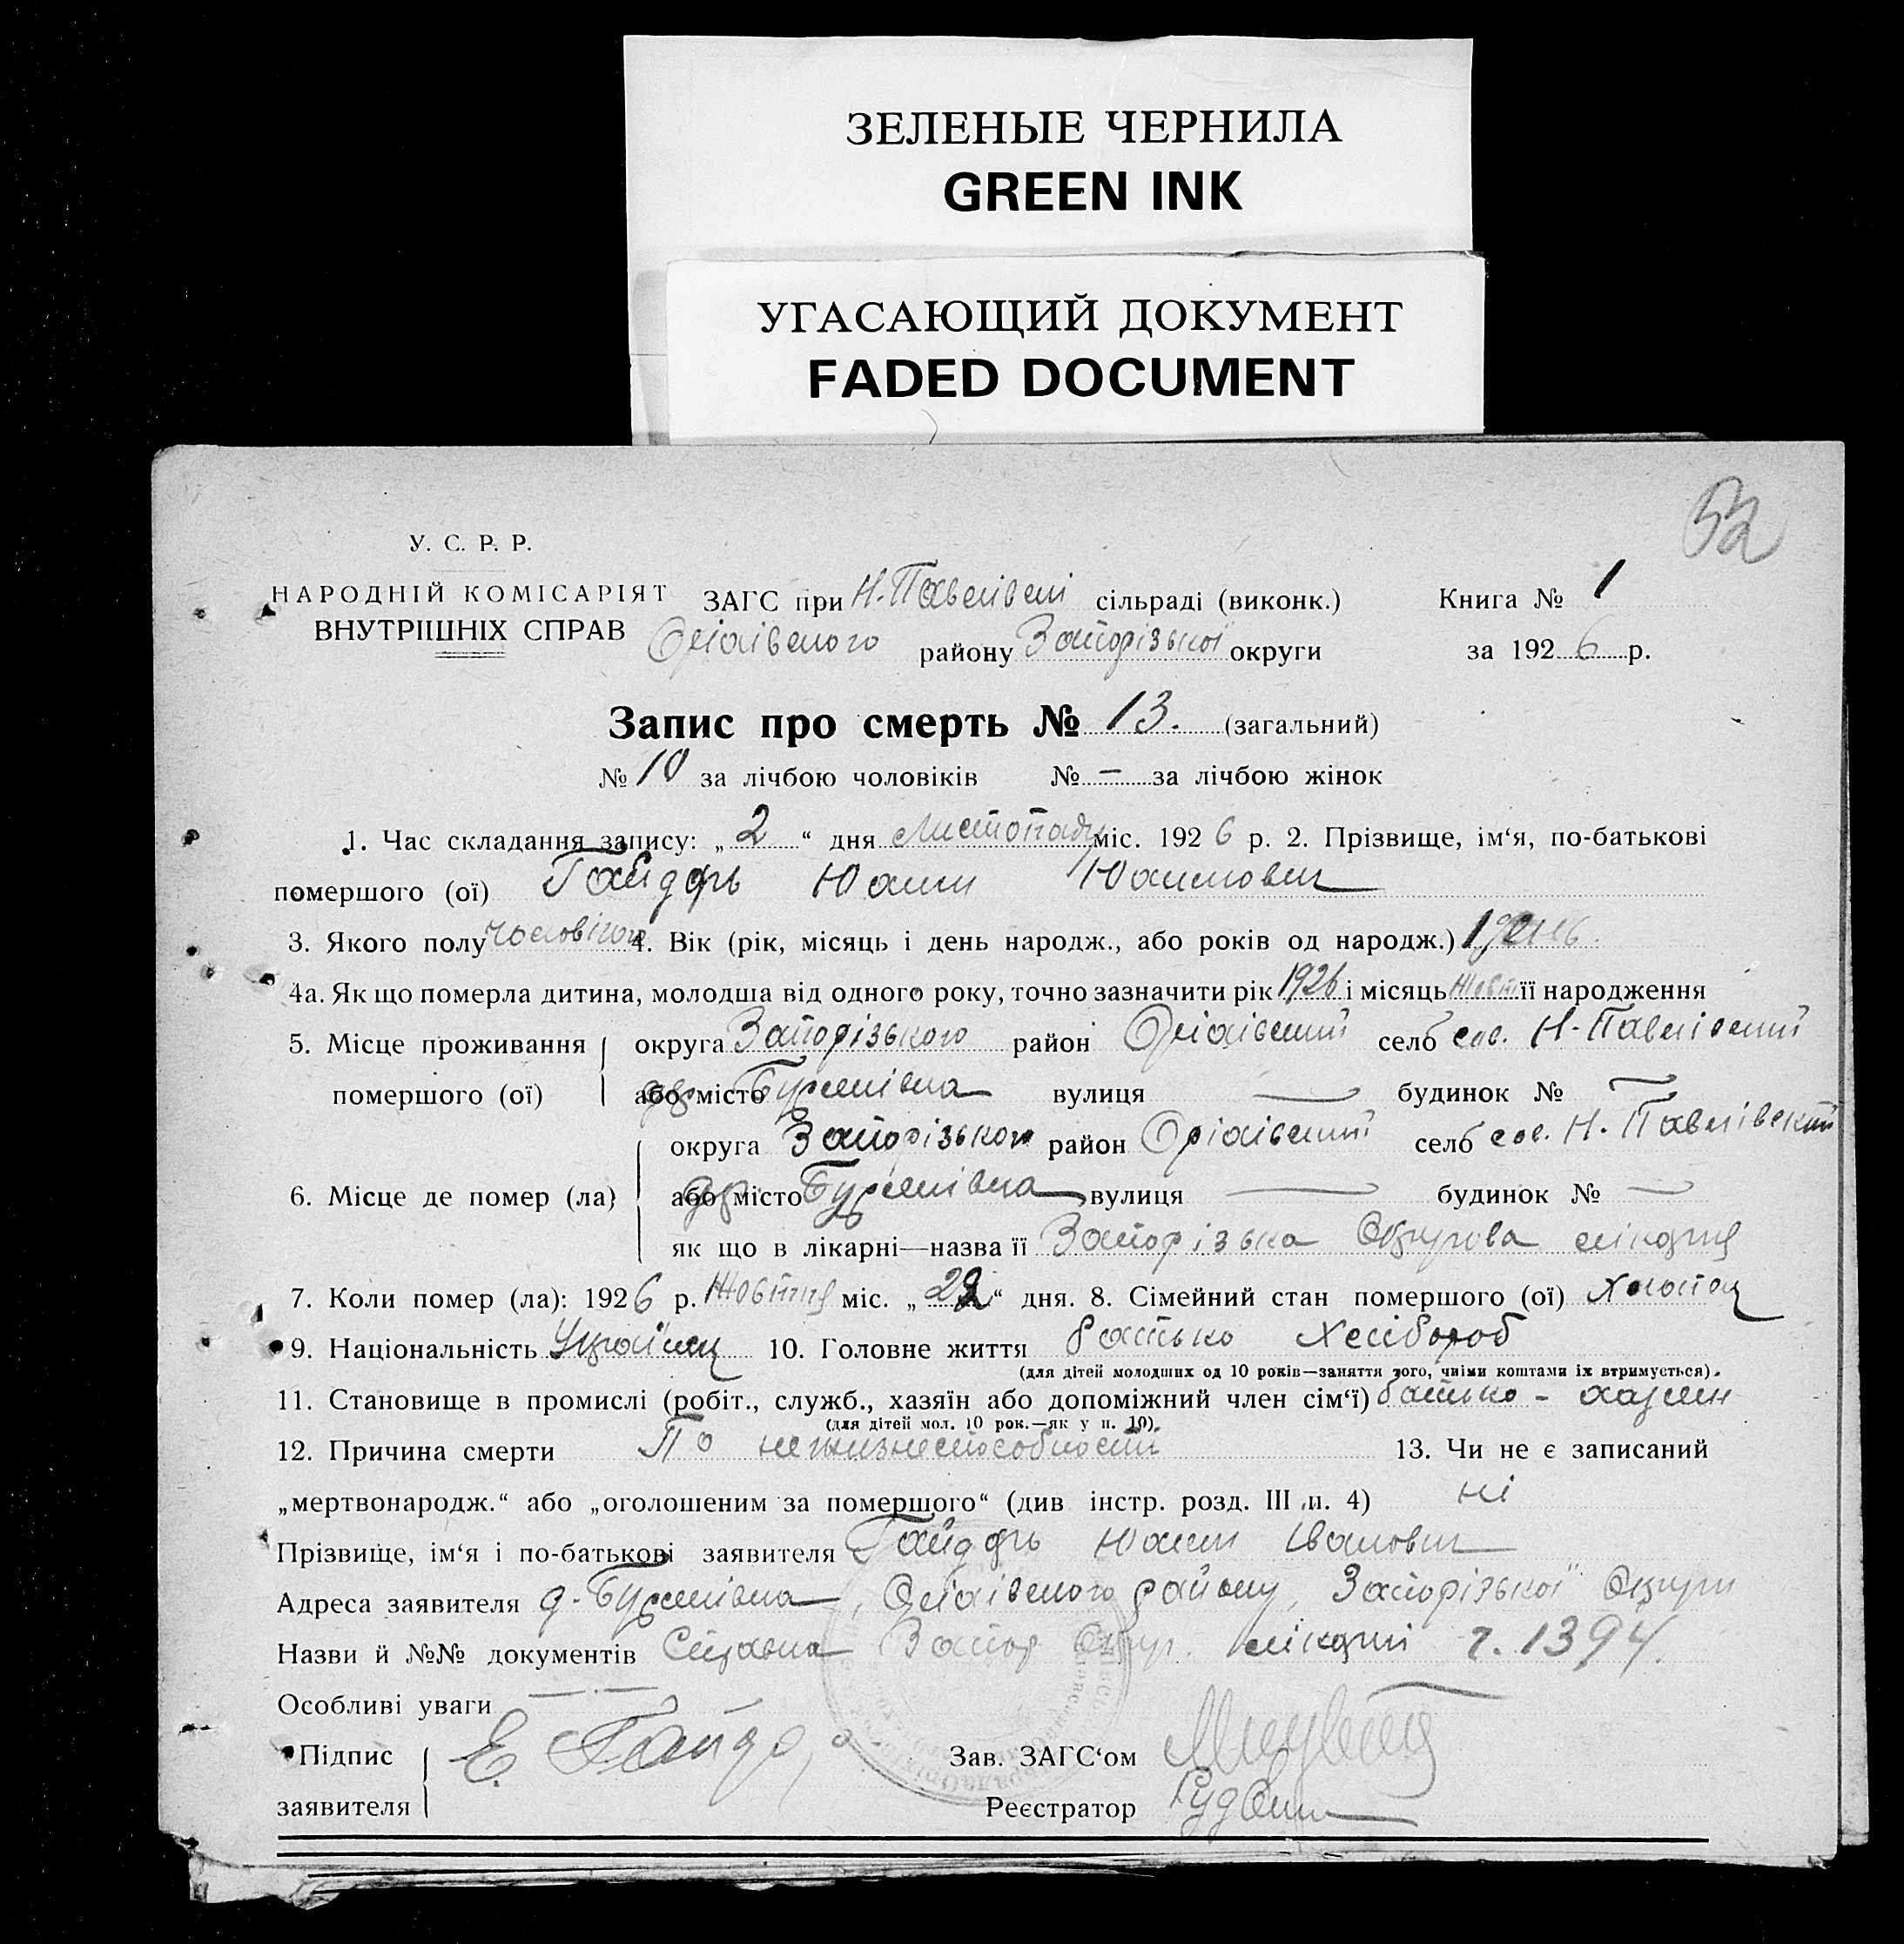 ЗЕЛЕНЫЕ ЧЕРНИЛА
GREEN INK
УГАСАЮЩИЙ ДОКУМЕНТ
FADED DOCUMENT
52
У. С. Р. Р.
НАРОДНІЙ КОМІСАРІЯТ
ВНУТРІШНІХ СПРАВ
ЗАГС при Н-Павлівскі сільраді (виконк.) Книга № 1
Оріхівского району Запорізької округи за 1926 р.
Запис про смерть № 13. (загальний)
№ 10 за лічбою чоловіків № — за лічбою жінок
1. Час складання запису: „ 2 “ дня Листопаду міс. 1926 р. 2. Прізвище, ім‘я, по-батькові
помершого (ої) Гайдарь Юхим Юхимович
3. Якого полу чоловічого 4. Вік (рік, місяць і день народж., або років од народж.) 1 день
4а. Як що померла дитина, молодша від одного року, точно зазначити рік 1926 і місяць Жовт її народження
5. Місце проживання округа Запорізького район Оріхівский село сов. Н-Павлівский
помершого (ої) або місто вулиця — будинок № —
округа Запорізького район Оріхівский село сов. Н. Павлівский
6. Місце де помер (ла) або місто вулиця — будинок № —
як що в лікарні—назва її Запорізька Окружова лікарня
7. Коли помер (ла): 1926 р. Жовтня міс. „ “ дня. 8. Сімейний стан помершого (ої) Хлопец
9. Національність Українец 10. Головне життя батько хлібороб
(для дітей молодших од 10 років—заняття того, чиїми коштами їх втримується).
11. Становище в промислі (робіт., служб., хазяїн або допоміжний член сім‘ї) батько - хазяин
(для дітей мол. 10 рок.—як у п. 10).
12. Причина смерти По нежизнеспособности 13. Чи не є записаний
„мертвонародж.“ або „оголошеним за помершого“ (див інстр. розд. III п. 4) ні
Прізвище, ім‘я і по-батькові заявителя Гайдарь Юхим Іванович
Адреса заявителя д. Оріхівского району, Запорізької Округи
Назви й №№ документів Справка Запор Окр. лікарні ч. 1394.
Особливі уваги —
Підпис Е Гайда Зав. ЗАГС‘ом
заявителя Реєстратор